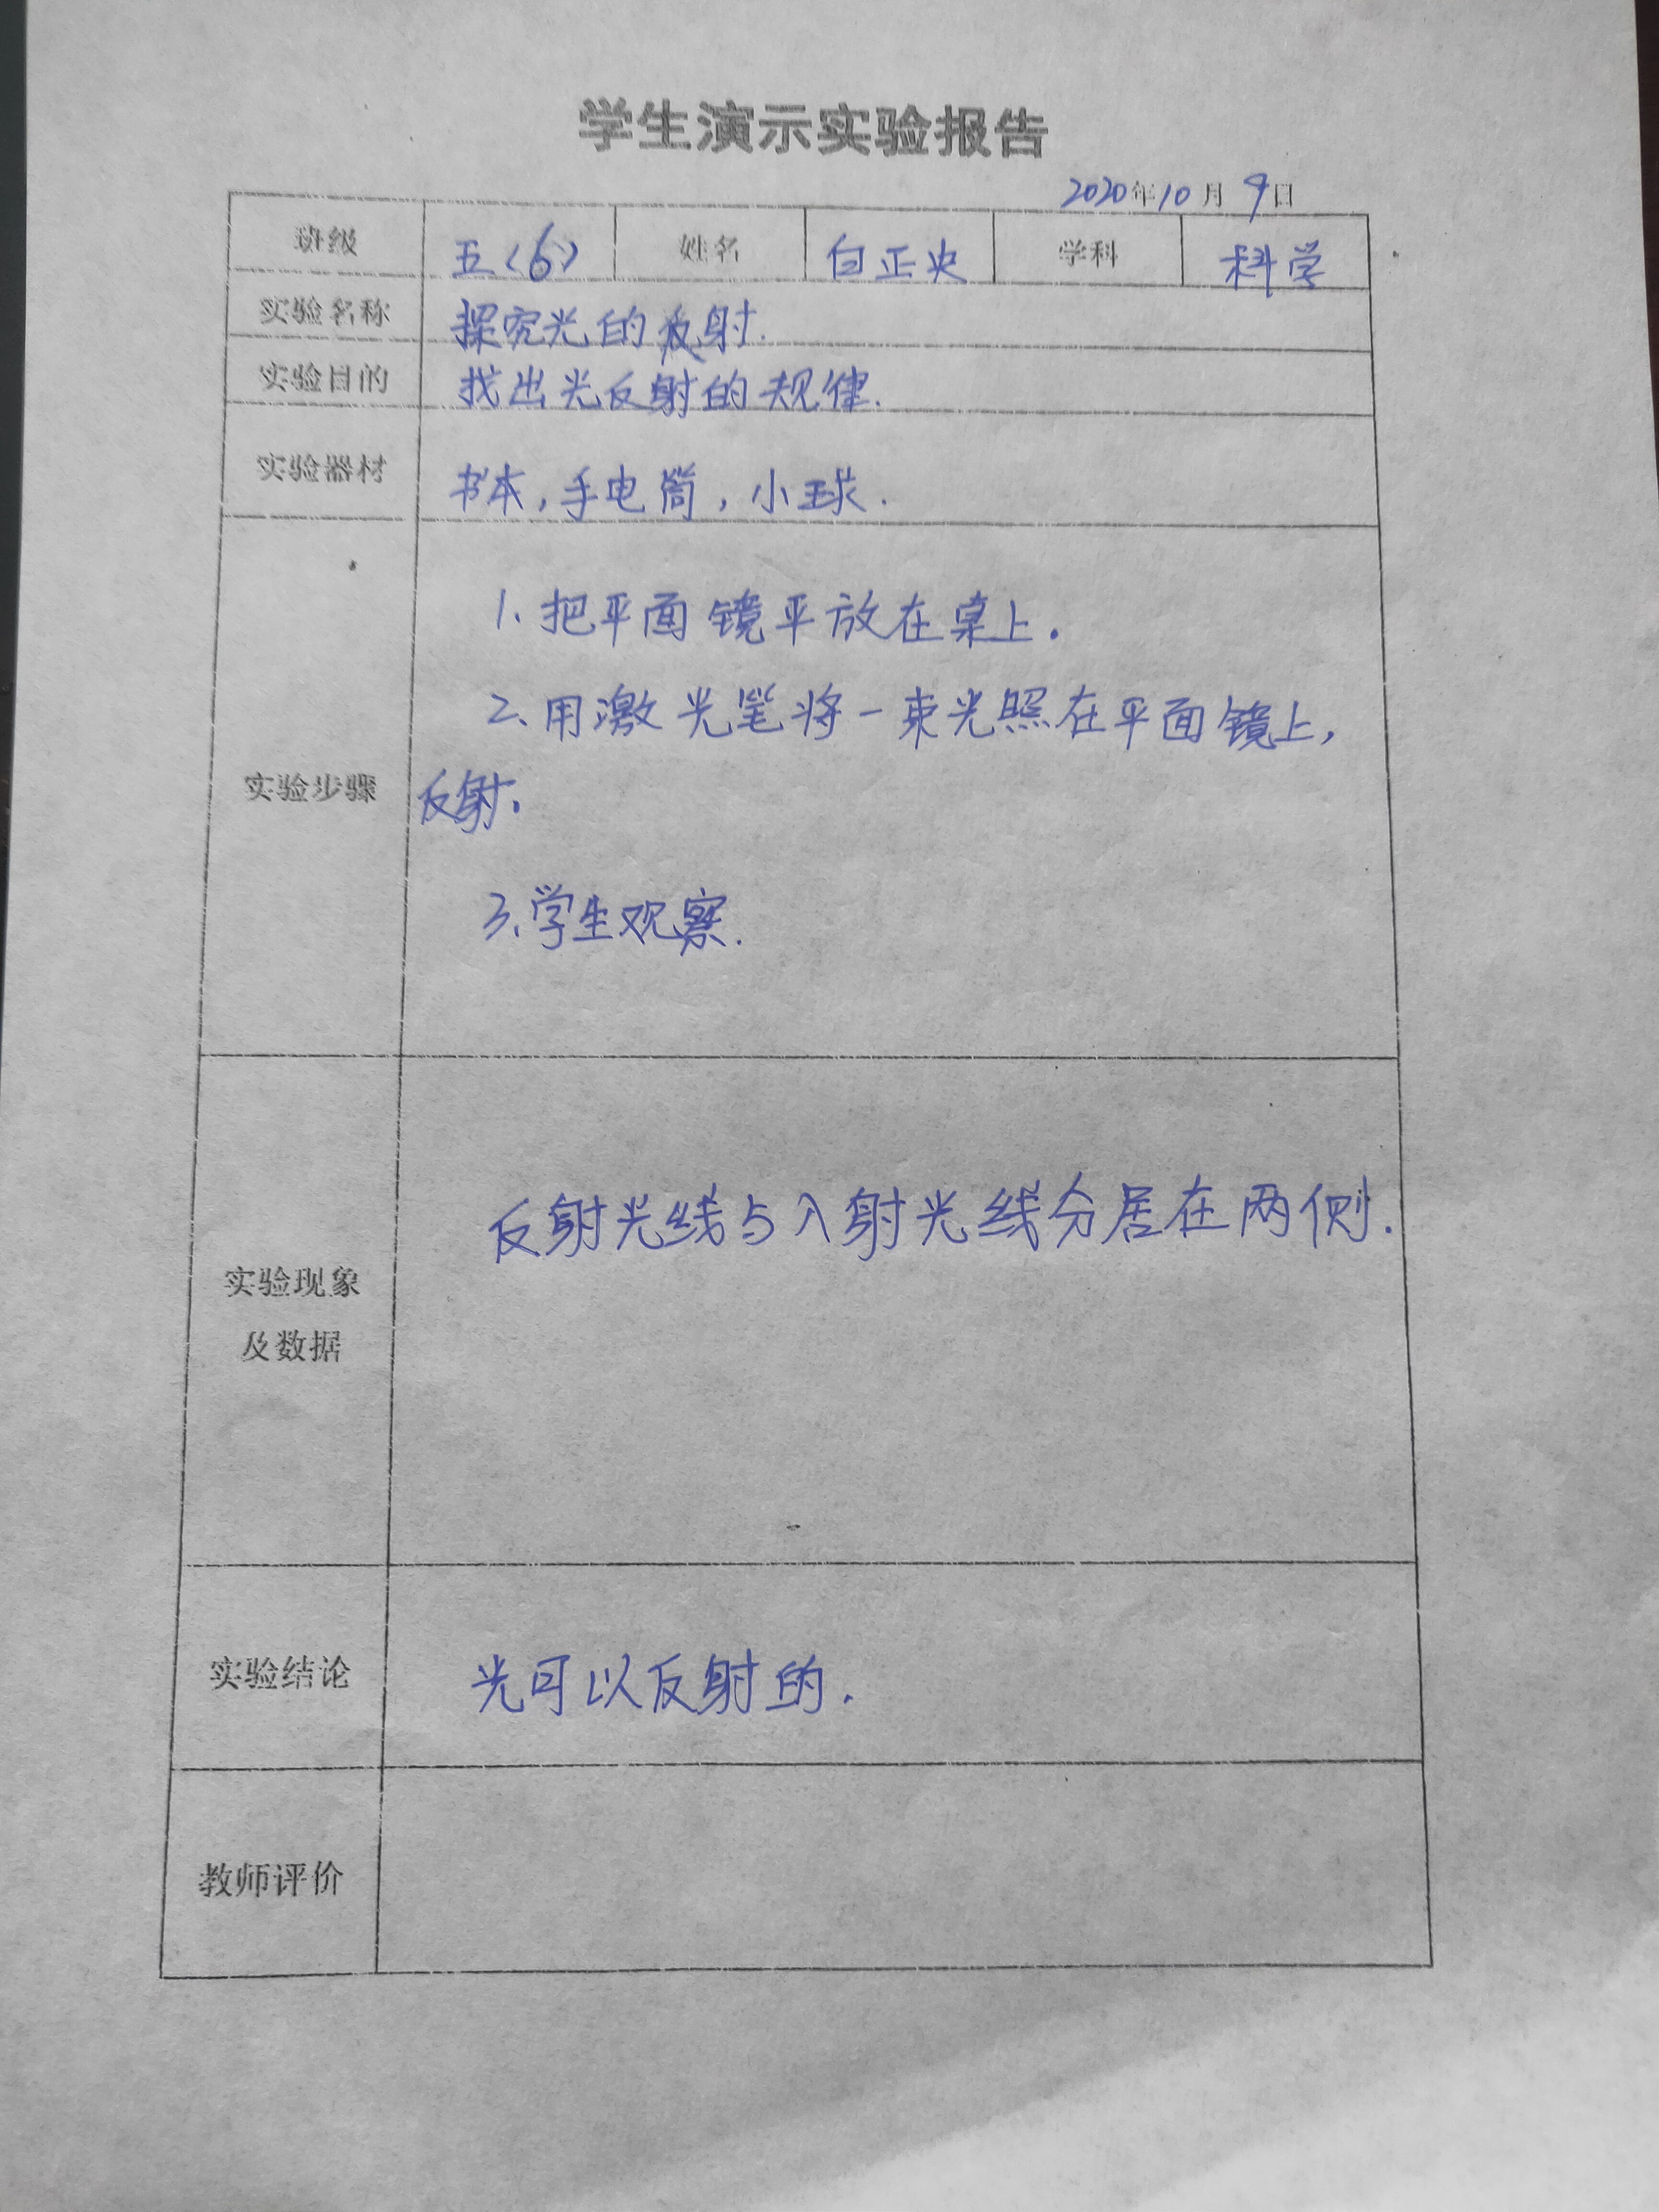 学生演示实验报告
2020年10月9日
班级 五(6) 姓名 白正央 学科 科学
实验名称 探究光的反射.
实验目的 找出光反射的规律.
实验器材 书本,手电筒,小球.
1.把平面镜平放在桌上.
2、用激光笔将一束光照在平面镜上,
实验步骤 反射.
3、学生观察.
反射光线与入射光线分居在两侧.
实验现象
及数据
实验结论 光可以反射的.
教师评价